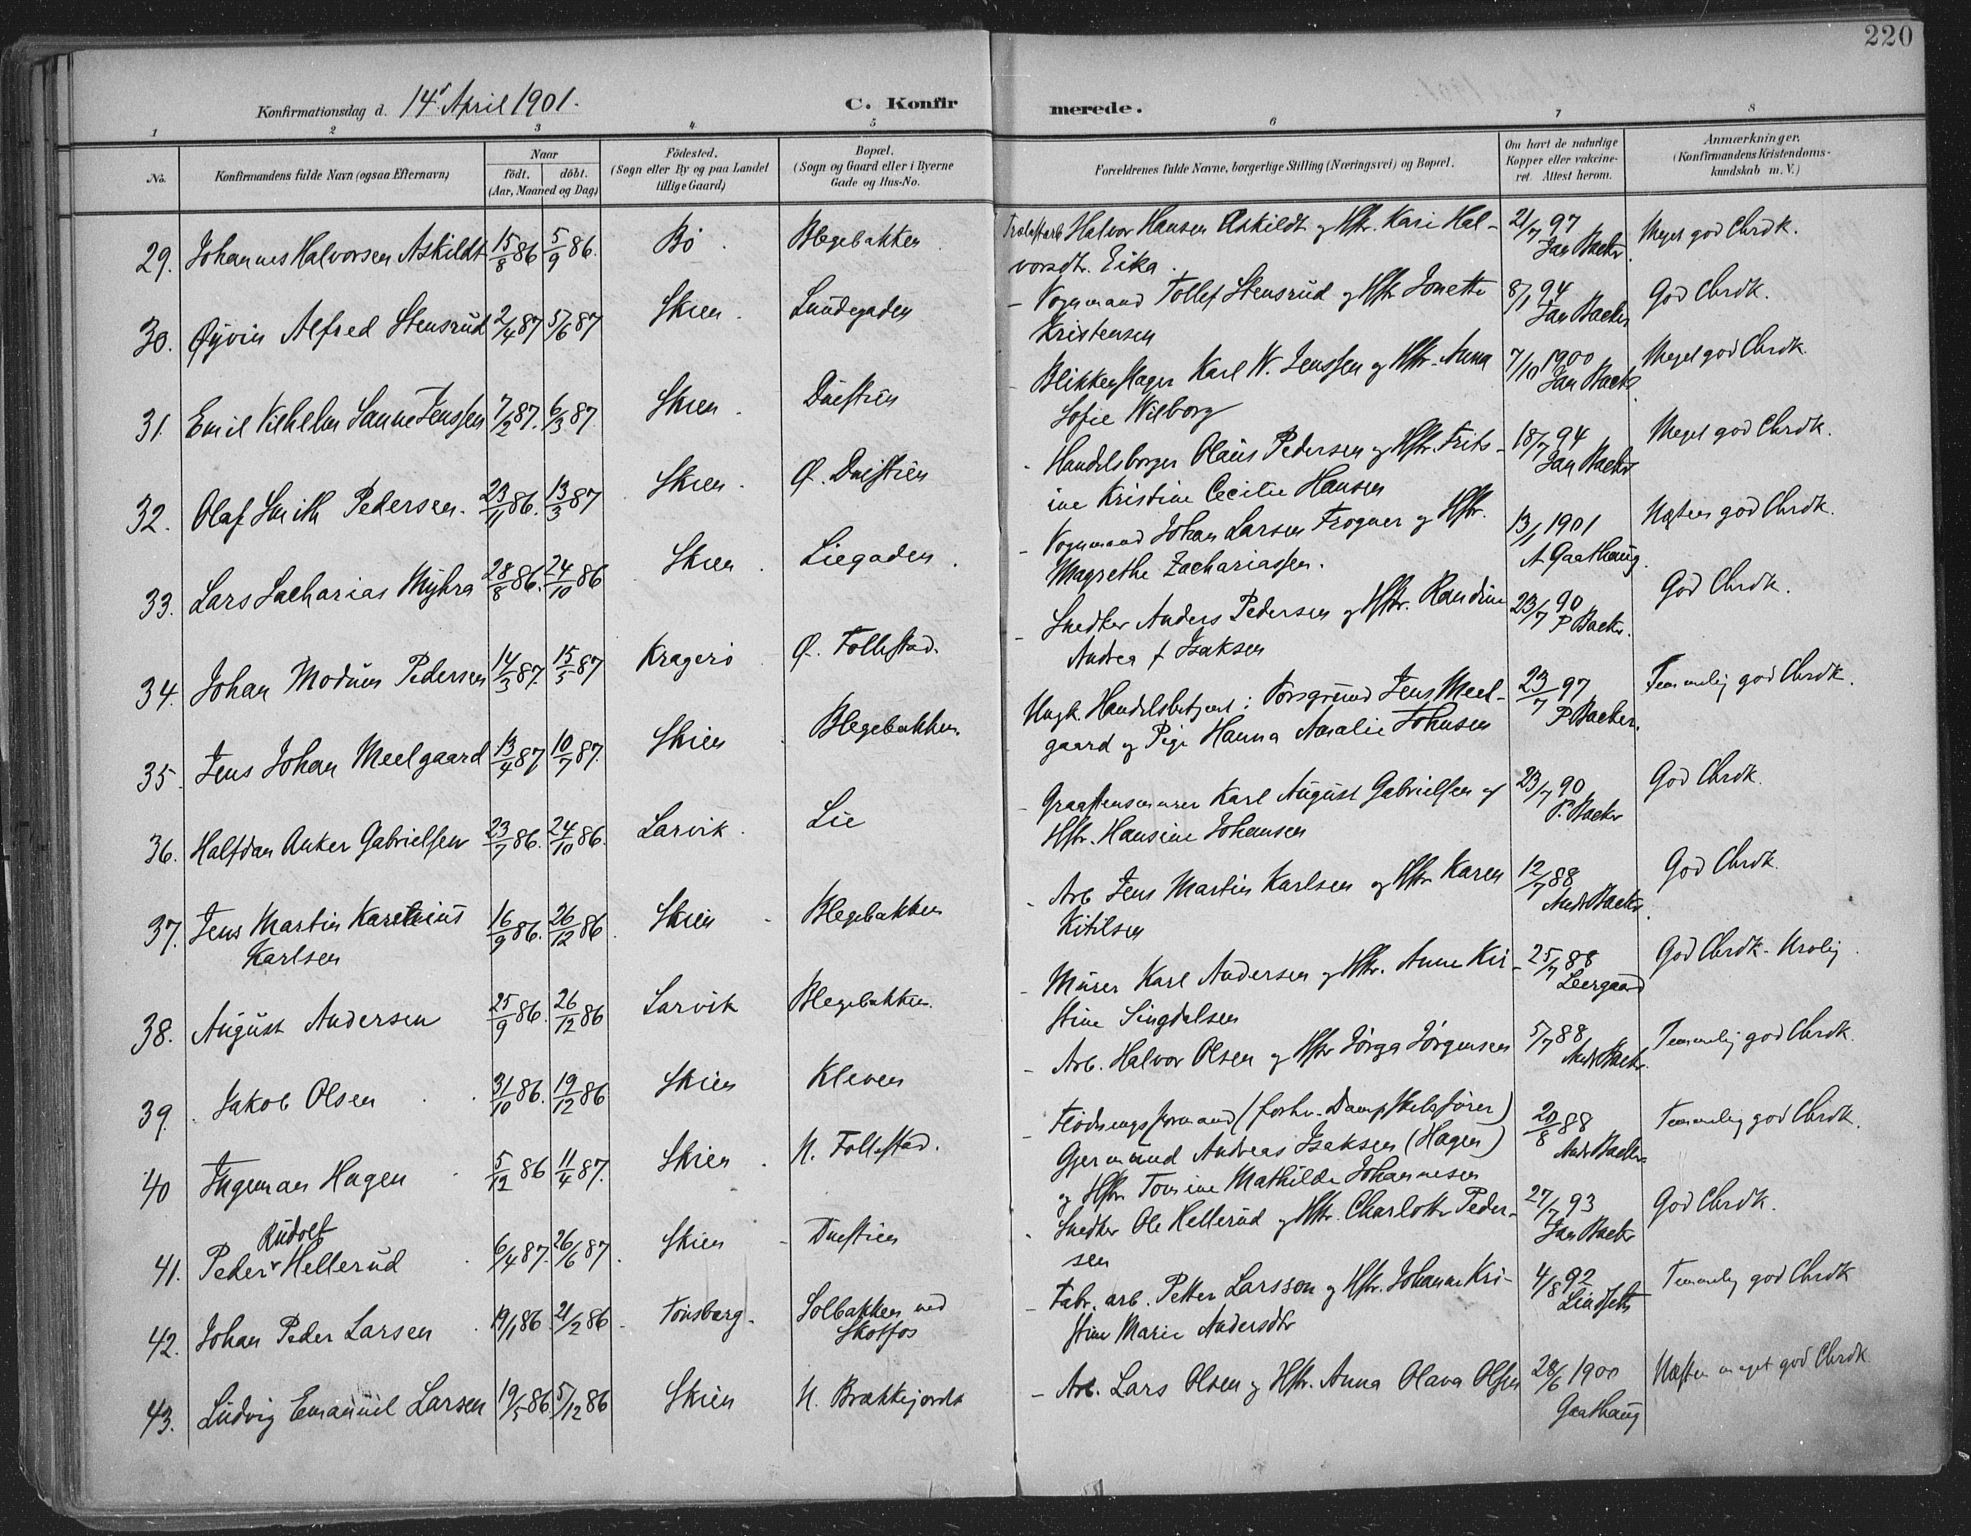 220
Konfirmationsdag d. 14d April 1901.
C. Konfirmerede.
1 2 3 4 5 6 7 8
No.
Konfirmandens fulde Navn (ogsaa Efternavn)
Naar
födt. döbt.
(Aar, Maaned og Dag)
Födested.
(Sogn eller By og paa Landet
tillige Gaard)
Bopæl.
(Sogn og Gaard eller i Byerne
Gade og Hus-No.
Forældrenes fulde Navne, borgerlige Stilling (Næringsvei) og Bopæl.
Om havt de naturlige
Kopper eller vakcine-
ret. Attest herom.
Anmærkninger.
(Konfirmandens Kristendoms-
kundskab m. V.)
29. Johannes Halvorsen Askildt 15/8 86 5/9 86. Bö Blegebakken Halvor Hansen Askildt og Hstr. Kari Hal- 21/7 97 Meget god Chrdk.
vorsdtr. Eika. Jan Backer
30. Øyvin Alfred Stensrud 2/4 87 5/6 87 Skien. Lundegaden - Vognmand Tollef Stensrud og Hstr Jonette 8/1 94 God Chrdk.
Kristensen Jan Backer
31. Emil Vilhelm Sanne Jenssen 7/2 87. 6/3 87. Skien. Duestien - Blikkenslager Karl W. Jenssen og Hstr. Anna 7/10 1900 Meget god Chrdk.
Sofie Wilborg Jan Backer
32. Olaf Smith Pedersen. 23/11 86. 13/3 87 Skien. Ø. Duestien - Handelsborger Olaus Pedersen og Hstr. Frits- 18/7 94 Meget god Chrdk.
ine Kristine Cecilie Hansen Jan Backer
33. Lars Zacharias Myhra 28/8 86. 24/10 86 Skien. Liegaden. - Vognmand Johan Larsen Frogner og Hstr. 13/1 1901 Næsten god Chrdk.
Magrethe Zachariassen. A Gaathaug.
34. Johan Modum Pedersen 14/3 87. 15/5 87 Kragerö Ø. Follestad. - Snedker Anders Pedersen og Hstr. Randine 23/7 90 God Chrdk.
Andrea f Isaksen P Backer.
35. Jens Johan Meelgaard 13/4 87 10/7 87. Skien Blegebakken. Ungk. Handelsbetjent i Porsgrund Jens Meel- 23/7 97 Temmelig god Chrdk.
gaard og Pige Hanna Amalie Johnsen P Backer.
36. Halfdan Anker Gabrielsen 23/7 86. 24/10 86. Larvik. Lie - Graastensmurer Karl August Gabrielsen og 23/7 90 God Chrdk.
Hstr. Hansine Johansen P. Backer
37. Jens Martin Karelius 16/9 86. 26/12 86. Skien Blegebakken - Arb Jens Martin Karlsen og Hstr Karen 12/7 88 God Chrdk.
Karlsen Kitilsen Andr Backer.
38. August Andersen 25/9 86. 26/12 86 Larvik Blegebakken. - Murer Karl Andersen og Hstr. Anne Kri- 25/7 88 God Chrdk - Urolig
stine Singdalsen Leergaard
39. Jakob Olsen 31/10 86. 19/12 86 Skien Kleven - Arb. Halvor Olsen og Hstr Jörga Jörgensen 5/7 88 Temmelig god Chrdk.
Andr Backer.
40 Ingeman Hagen 5/12 86 11/4 87. Skien. N. Follestad. - Flödningsformand (forhv. Dampskibsförer) 20/8 88 Temmelig god Chrdk.
Gjermund Andreas Isaksen (Hagen) Andr Backer
og Hstr Tomine Mathilde Johannesen
41. Peder Rudolf Hellerud 6/4 87. 26/6 87. Skien Duestien Snedker Ole Hellerud og Hstr. Charlotte Peder- 27/7 93 God Chrdk.
sen Jan Backer
42. Johan Peder Larsen 19/1 86. 21/2 86. Tönsberg. Solbakken ved - Fabr. arb. Petter Larsson og Hstr. Johanne Kri- 4/8 92 Temmelig god Chrdk
Skotfos stine Marie Andersdtr Lindseth
43. Ludvig Emanuel Larsen 19/5 86 5/12 86 Skien N. Brækkejordet - Arb. Lars Olsen og Hstr. Anna Olava Olsen 28/6 1900 Næsten meget god Chrdk
Gaathaug